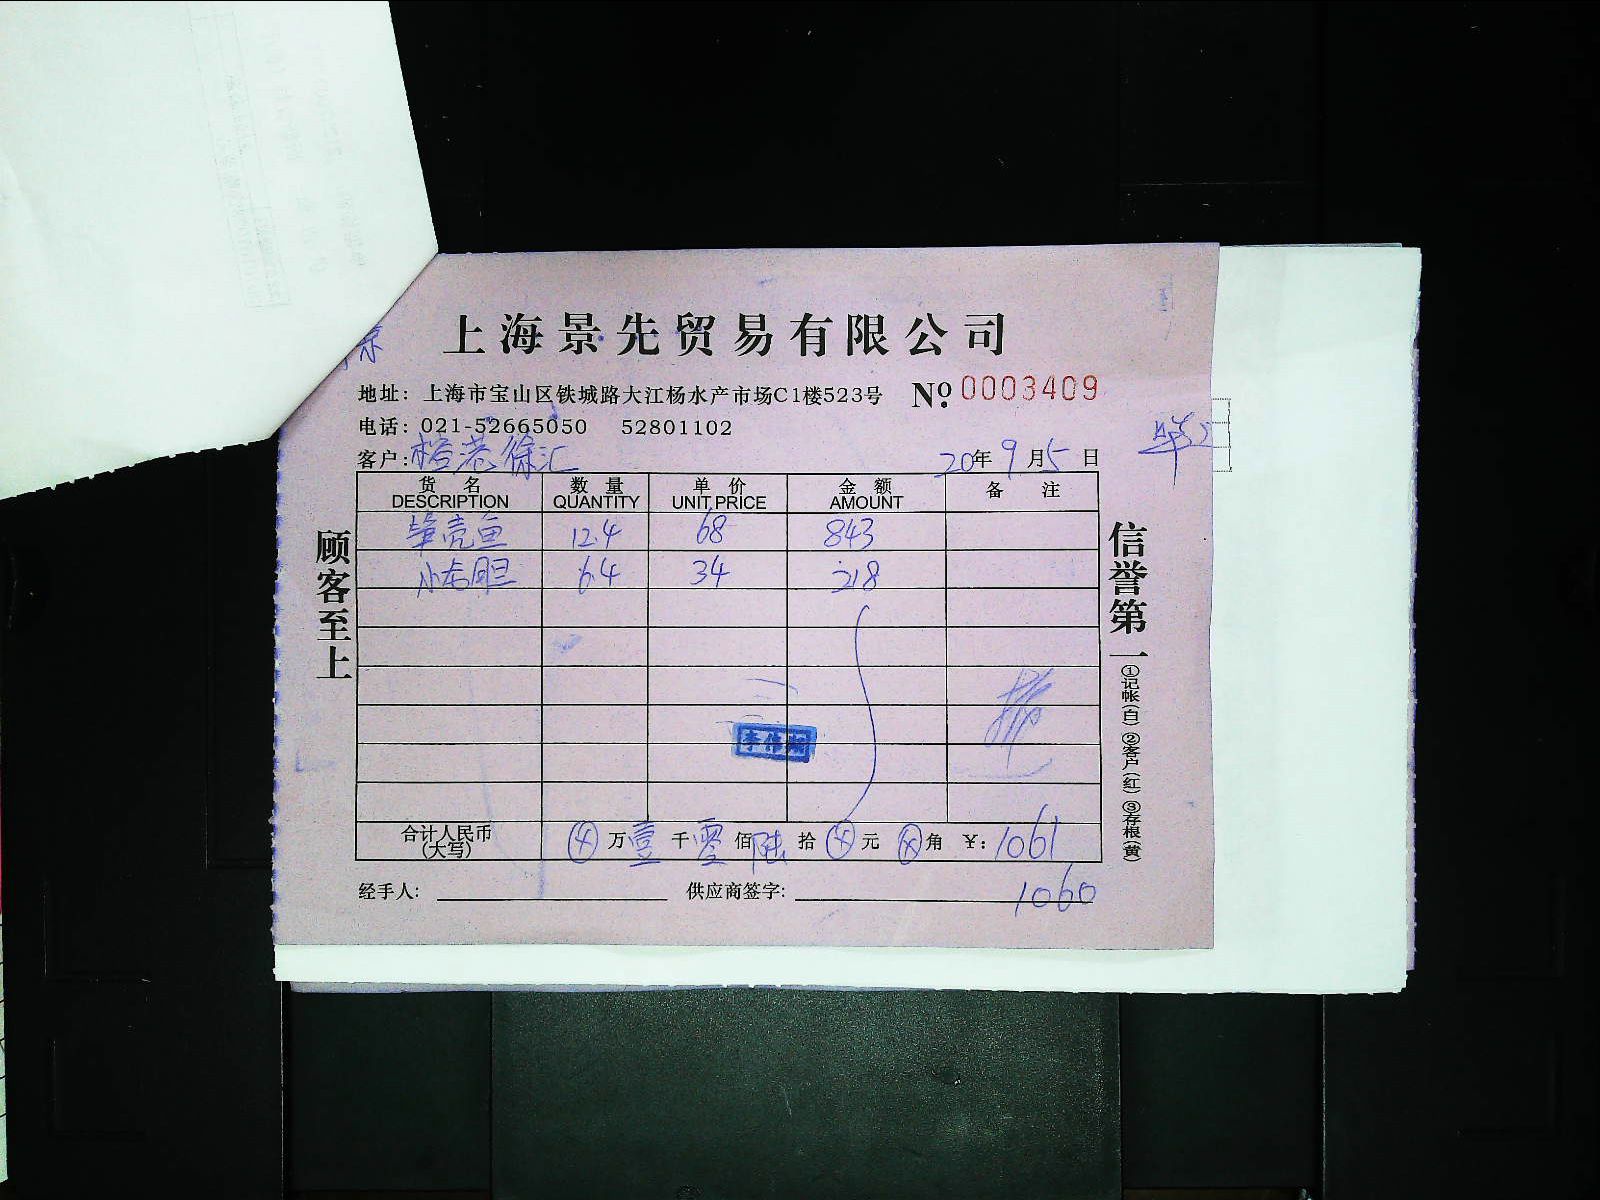 上海景先贸易有限公司
地址：上海市宝山区铁城路大江杨水产市场C1楼523号 № 0003409
电话：021-52665050 52801102
客户：徐汇 20年9月5日
货名 DESCRIPTION 数量 QUANTITY 单价 UNIT PRICE 金额 AMOUNT 备注
笋壳鱼 12.4 68 843
小龙胆 6.4 34 218
合计人民币(大写) 万壹千零佰陆拾 元 角 ¥: 1061
经手人： 供应商签字： 1060
顾客至上
信誉第一
①记帐(白)②客户(红)③存根(黄)